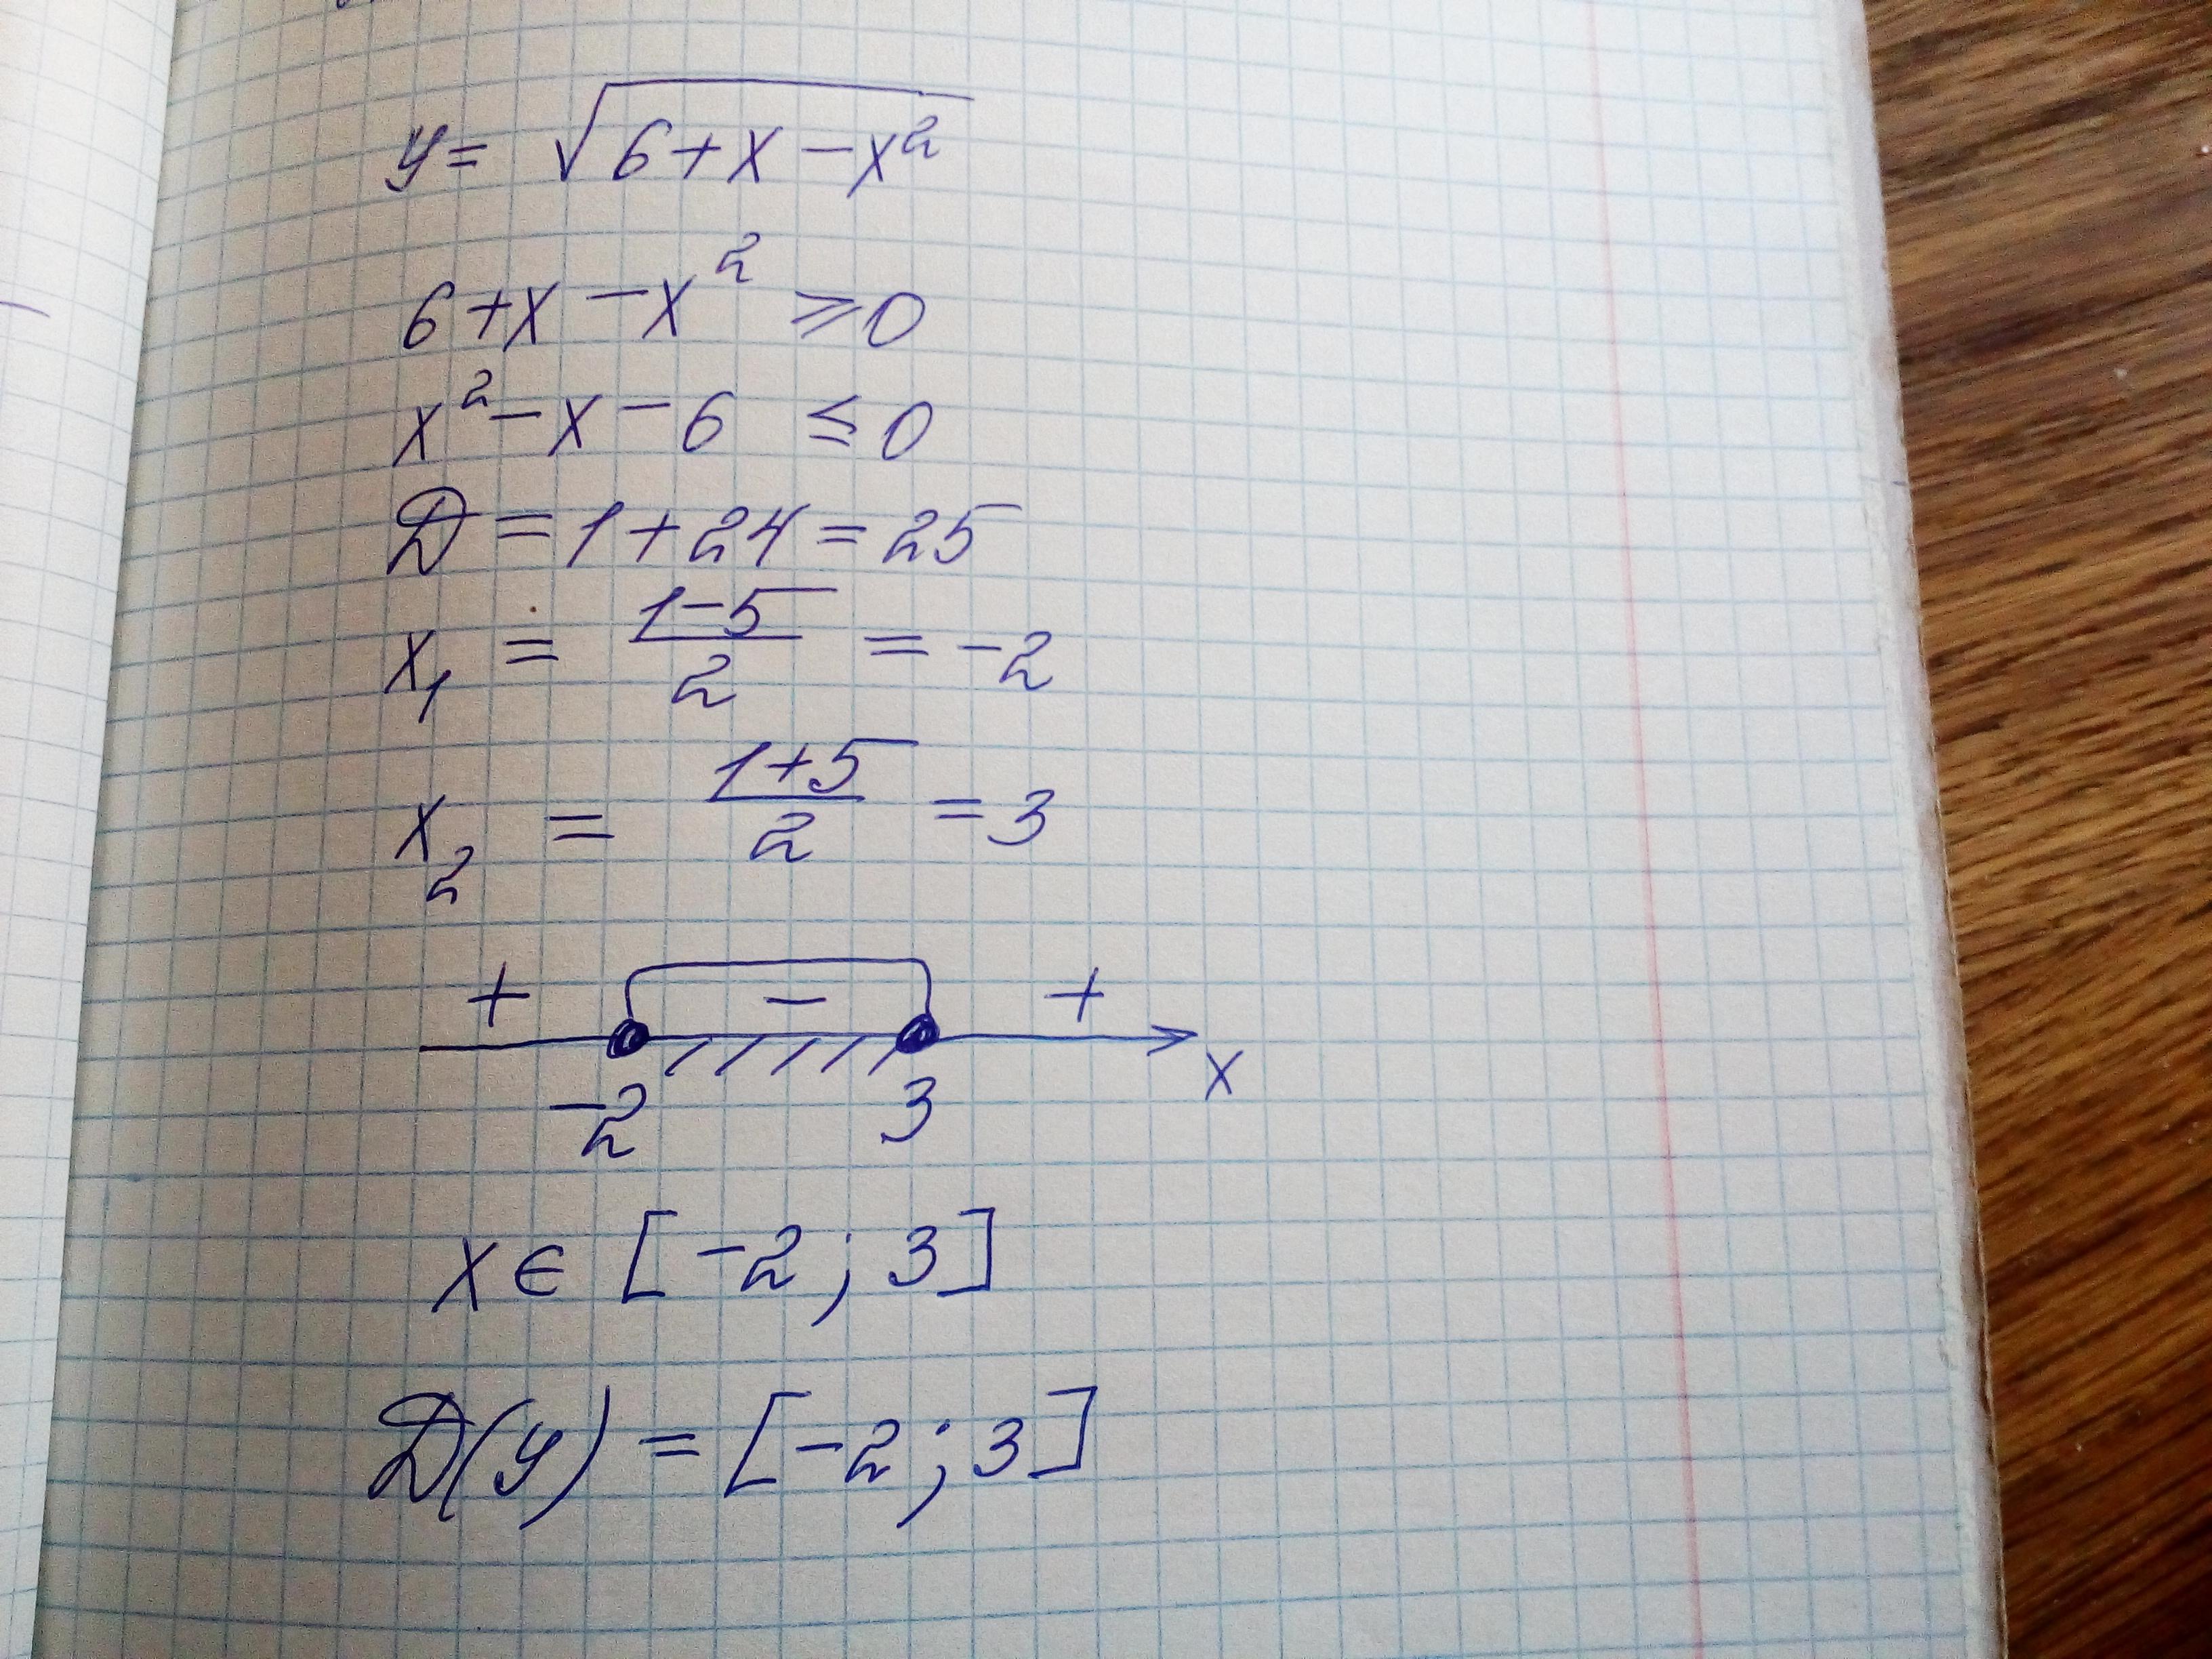 y = √(6+x−x²)
6+x−x² ⩾0
x²−x−6 ≤0
D=1+24=25
x₁ = (1−5)/2 = −2
x₂ = (1+5)/2 = 3
+ − +
−2 3 x
x∈ [−2; 3]
D(y) = [−2; 3]